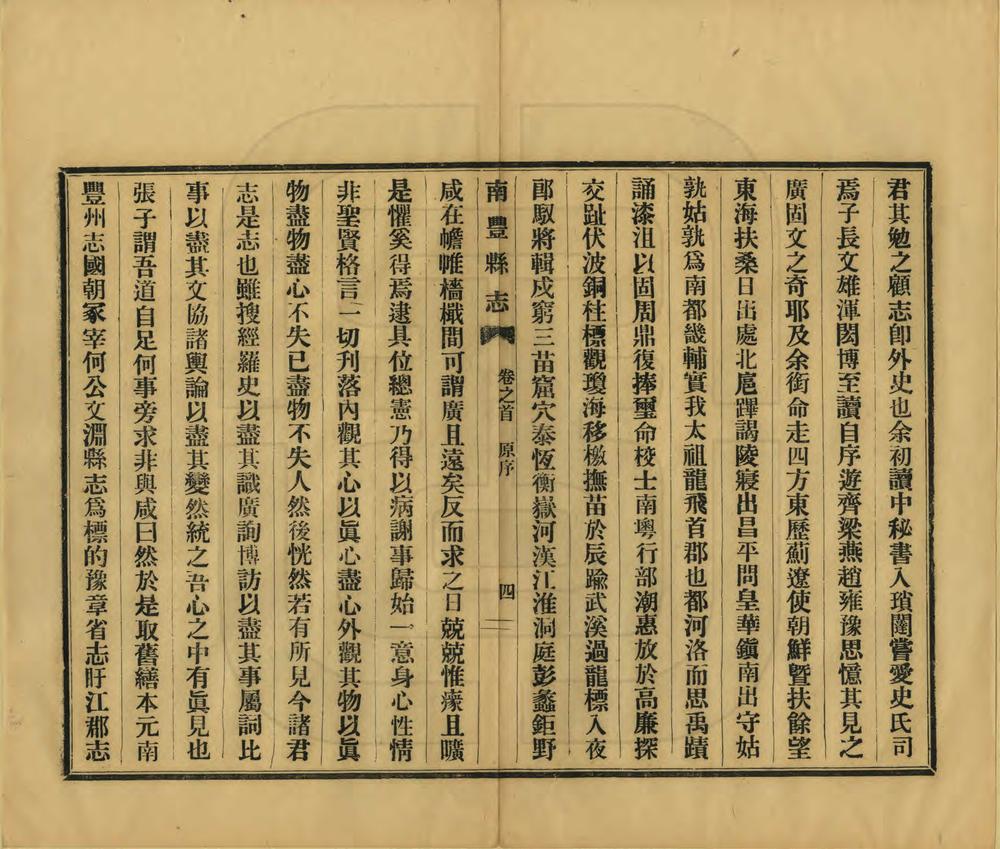 君其勉之顧志卽外史也余初讀中秘書入瑣闥嘗愛史氏司
焉子長文雄渾閎博至讀自序遊齊梁燕趙雍豫思憶其見之
廣固文之奇耶及余銜命走四方東歷薊遼使朝鮮曁扶餘望
東海扶桑日出處北扈蹕謁陵寢出昌平問皇華鎭南出守姑
孰姑孰爲南都畿輔實我太祖龍飛首郡也都河洛而思禹蹟
誦漆沮以固周鼎復捧璽命校士南粵行部潮惠放於高廉探
交趾伏波銅柱標觀瓊海移檄撫苗於辰踰武溪過龍標入夜
郎馭將輯戍窮三苗窟穴泰恆衡嶽河漢江淮洞庭彭蠡鉅野
南豐縣志 卷之首 原序 四
咸在幨帷檣櫼間可謂廣且遠矣反而求之日兢兢惟瘝且曠
是懼奚得焉逮具位總憲乃得以病謝事歸始一意身心性情
非聖賢格言一切刋落內觀其心以眞心盡心外觀其物以眞
物盡物盡心不失已盡物不失人然後恍然若有所見今諸君
志是志也雖搜經羅史以盡其識廣詢博訪以盡其事屬詞比
事以盡其文協諸輿論以盡其變然統之吾心之中有眞見也
張子謂吾道自足何事旁求非與咸曰然於是取舊繕本元南
豐州志國朝冢宰何公文淵縣志爲標的豫章省志旴江郡志